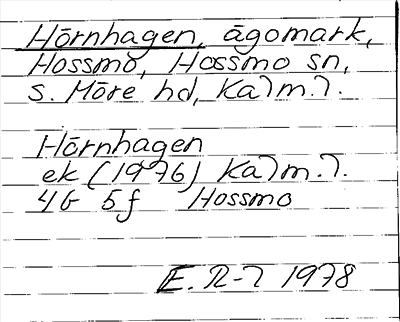 Hörnhagen, ägomark,
Hossmo, Hossmo sn,
S. Möre hd, Kalm. l.
Hörnhagen
ek (1976) Kalm. l.
4G 5f Hossmo
E. R-l 1978